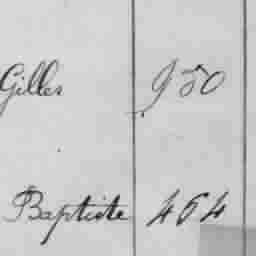 Gilles 950
Baptiste 464